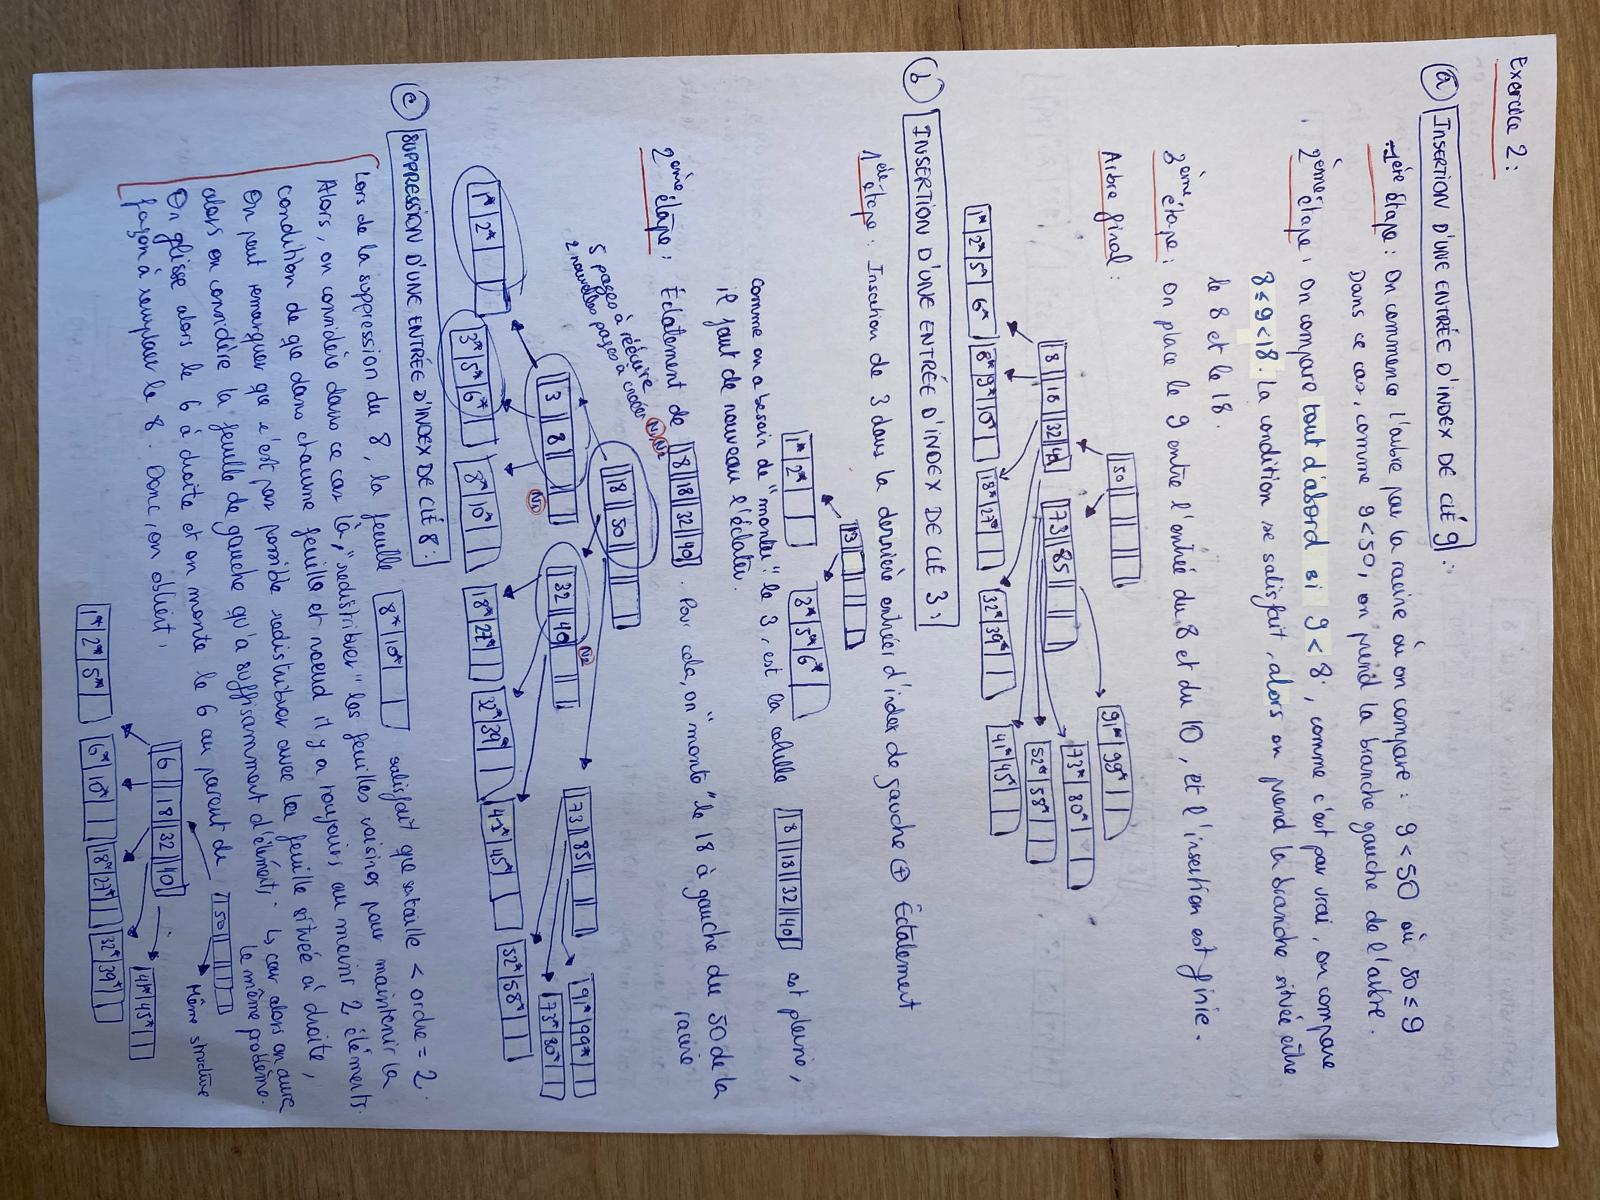 Exercice 2:
a) INSERTION D'UNE ENTRÉE D'INDEX DE CLÉ 9 :
1ère étape : On commence l'arbre par la racine où on compare : 9 < 50 où 50 ≤ 9
Dans ce cas, comme 9 < 50, on prend la branche gauche de l'arbre.
2ème étape : On compare tout d'abord si 9 < 8, comme c'est par vrai, on compare
8 ≤ 9 < 18. La condition se satisfait, alors on prend la branche située entre
le 8 et le 18.
3ème étape : On place le 9 entre l'entrée du 8 et du 10, et l'insertion est finie.
Arbre final :
50
91* 99*
73* 80*
8 18 32 40
73 85
52* 58*
1* 2* 5* 6*
8* 9* 10*
18* 27*
32* 39*
41* 45*
b) INSERTION D'UNE ENTRÉE D'INDEX DE CLÉ 3 :
1ère étape : Insertion de 3 dans la dernière entrées d'index de gauche ⊕ Éctalement
3
1* 2*
3* 5* 6*
Comme on a besoin de "monter" le 3, est la cellule 8 18 32 40 est pleine,
il faut de nouveau l'éclater.
2ème étape : Éclatement de 8 18 32 40. Pour cela, on "monte" le 18 à gauche du 50 de la
racine
5 pages à réécrire
2 nouvelles pages à créer N1 N2
18 50
3 8
N1
32 40
N2
73 85
91* 99*
73* 80*
1* 2*
3* 5* 6*
8* 10*
18* 27*
32* 39*
41* 45*
52* 58*
c) SUPPRESSION D'UNE ENTRÉE D'INDEX DE CLÉ 8 :
Lors de la suppression du 8, la feuille 8* 10* satisfait que sa taille < ordre = 2.
Alors, on considère dans ce cas là, "redistribuer" les feuilles voisines pour maintenir la
condition de que dans chacune feuille et noeud il y a toujours au moins 2 éléments.
On peut remarquer que c'est par possible redistribuer avec la feuille située à droite,
↳ car alors on aura
le même problème.
alors on considère la feuille de gauche qu'a suffisamment d'éléments.
On glisse alors le 6 à droite et on monte le 6 au parent de
façon à remplacer le 8. Donc, on obtient :
50
Même structure
6 18 32 40
41* 45*
1* 2* 5*
6* 10*
18* 27*
32* 39*